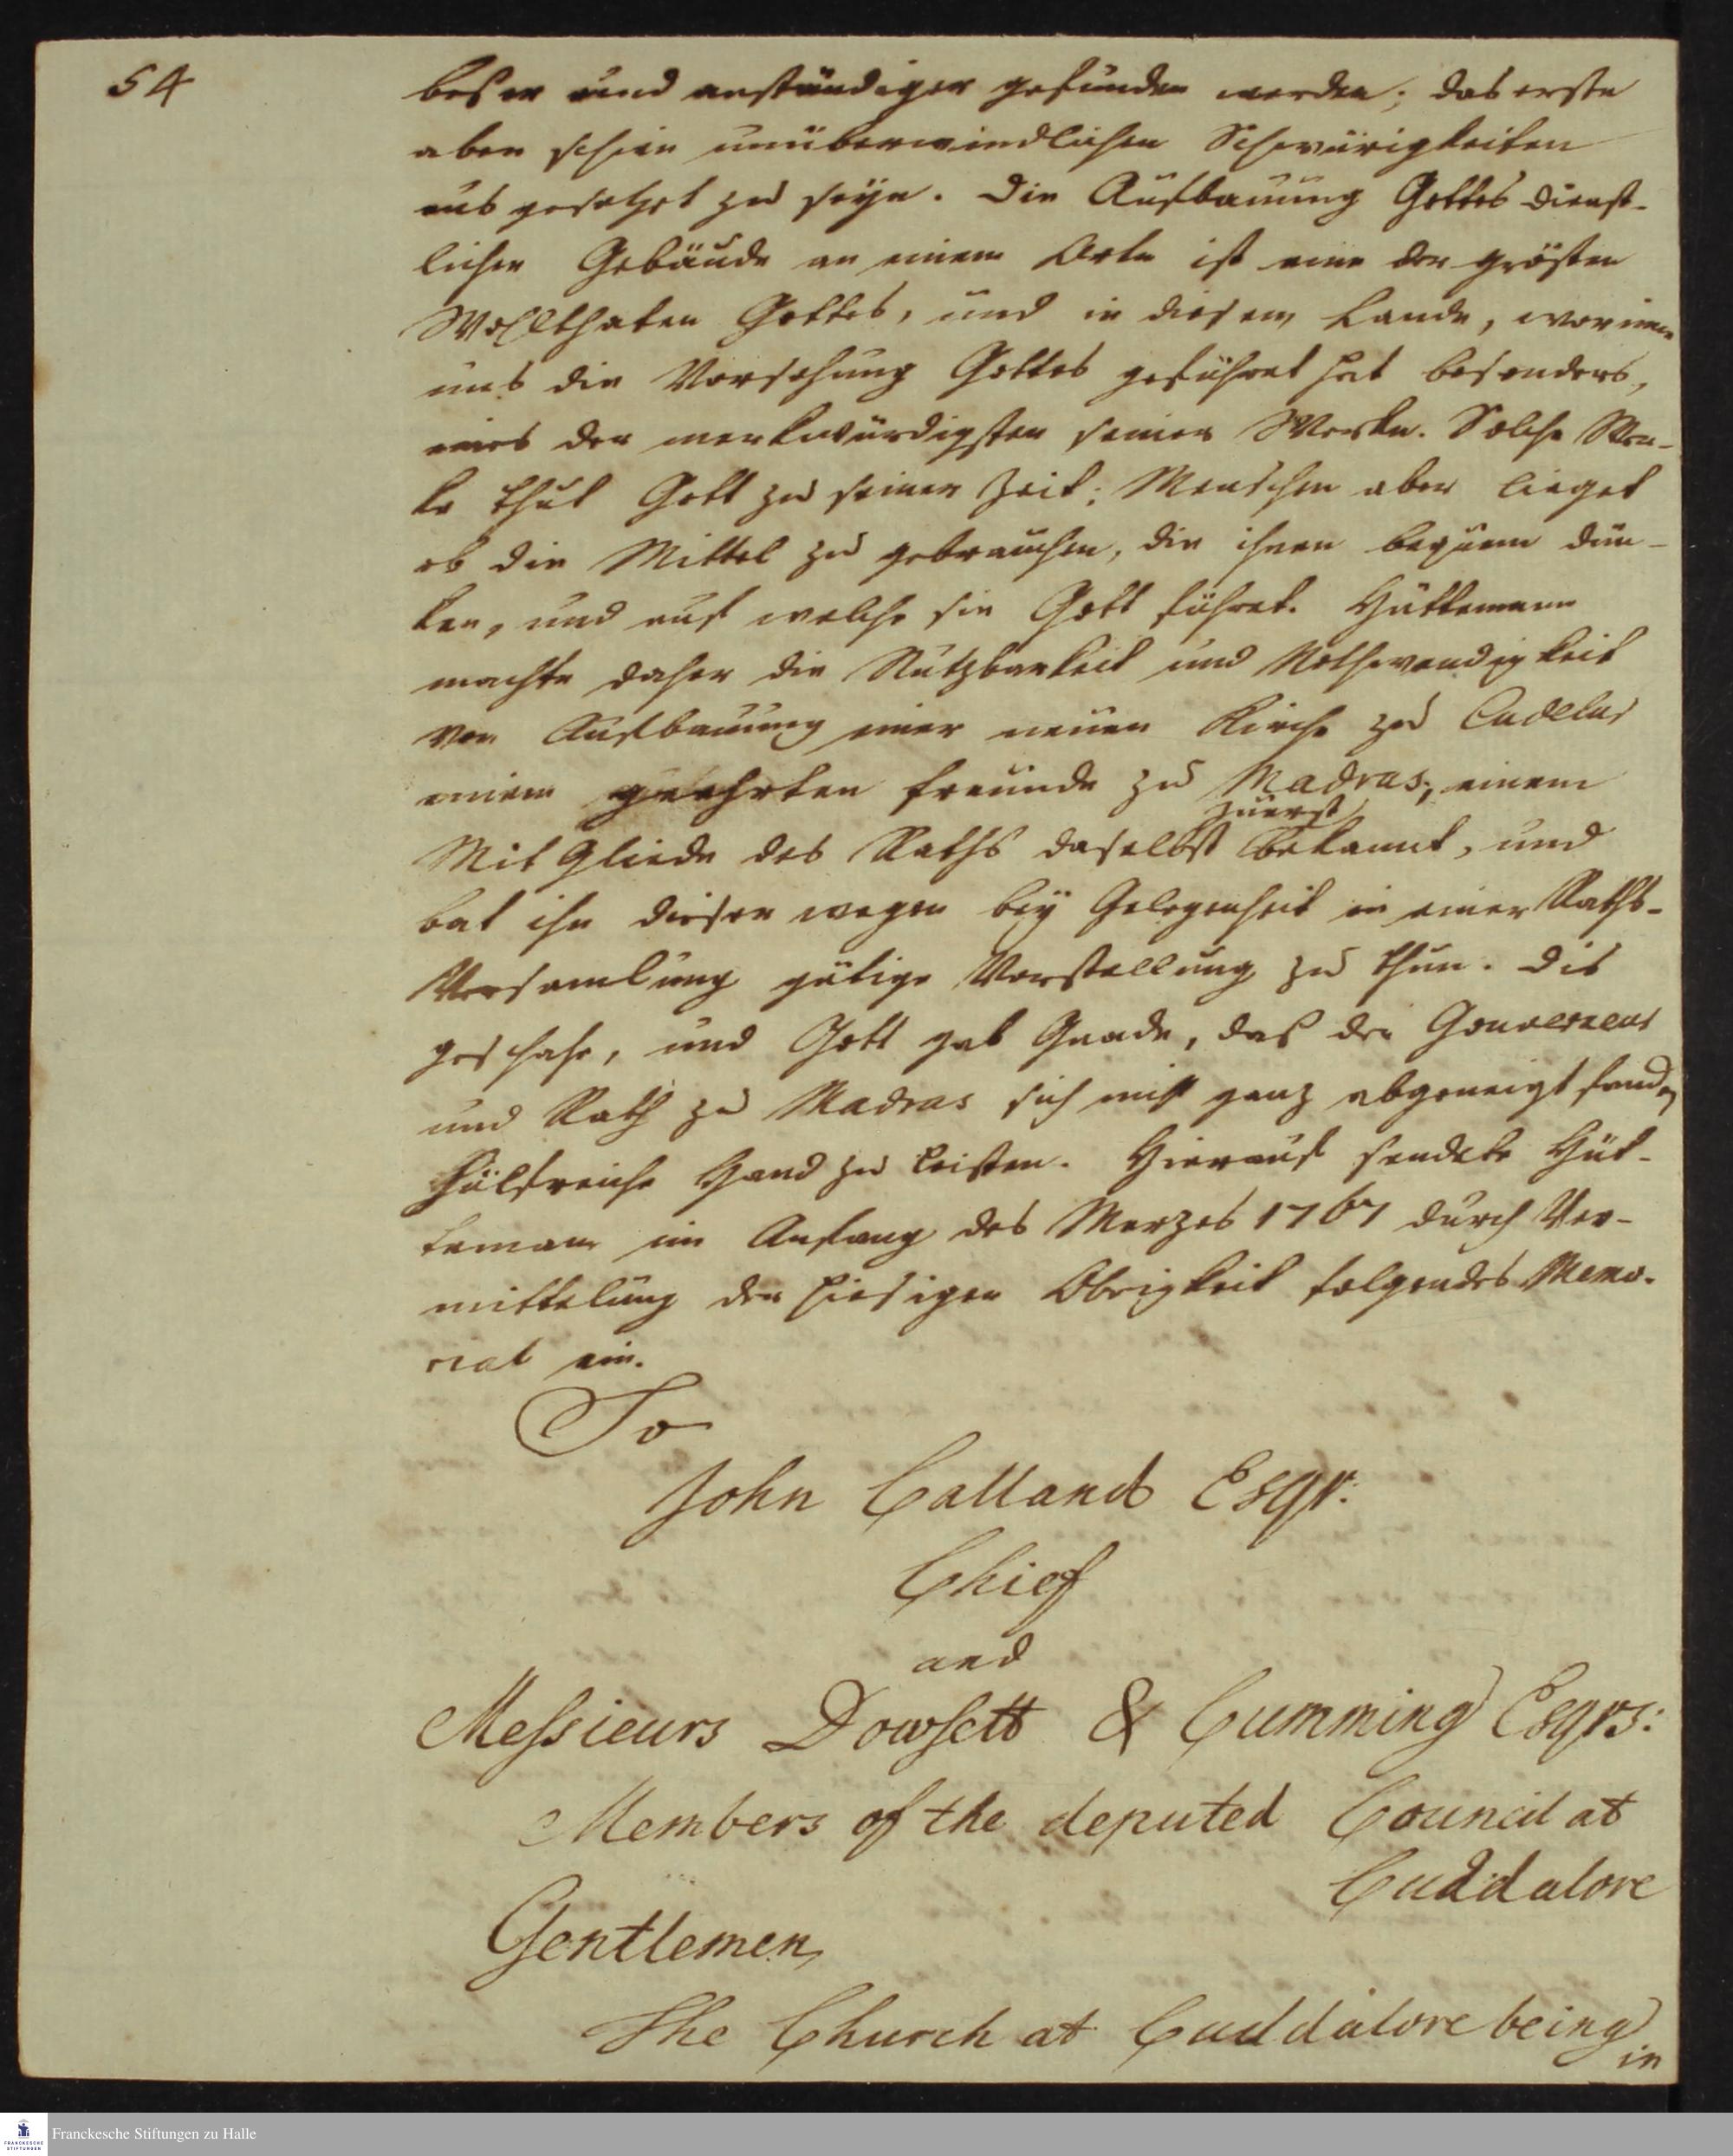 54
beser und anständiger gefunden werden; das erste
aber schien unüberwindlichen Schwürigkeiten
ausgesetzet zu seÿn. Die Aufbauung Gottesdienst-
licher Gebäude an einem Orte ist eine der grösten
Wohlthaten Gottes, und in diesem Lande, worinne
uns die Vorsehung Gottes geführet hat besonders,
eines der merkwürdigsten seiner Werke. Solche Wer-
ke thut Gott zu seiner Zeit; Menschen aber lieget
ob die Mittel zu gebrauchen, die ihnen bequem dün-
ken, und auf welche sie Gott führet. Hüttemann
machte daher die Nutzbarkeit und Nothwendigkeit
von Aufbauung einer neuen Kirche zu Cudelur
einem geehrten Freunde zu Madras, einem
zuerst
Mit Gliede des Raths daselbst bekannt, und
bat ihn dieser wegen beÿ Gelegenheit in einer Raths-
Versamlung gütige Vorstellung zu thun. Dis
geschahe, und Gott gab Gnade, daß der Gouverneur
und Rath zu Madras sich nicht ganz abgeneigt fanden
hülfreiche Hand zu leisten. Hierauf sendete Hüt-
temann im Anfang des Merzes 1767 durch Ver-
mittelung der hiesigen Obrigkeit folgendes Memo-
rial ein.
To
John Calland Esqr:
Chief
and
Messieurs Dowsett & Cumming Esqrs:
Members of the deputed Council at
Cuddalore
Gentlemen,
The Church at Cuddalore being
in
Franckesche Stiftungen zu Halle
FRANCKESCHE STIFTUNGEN